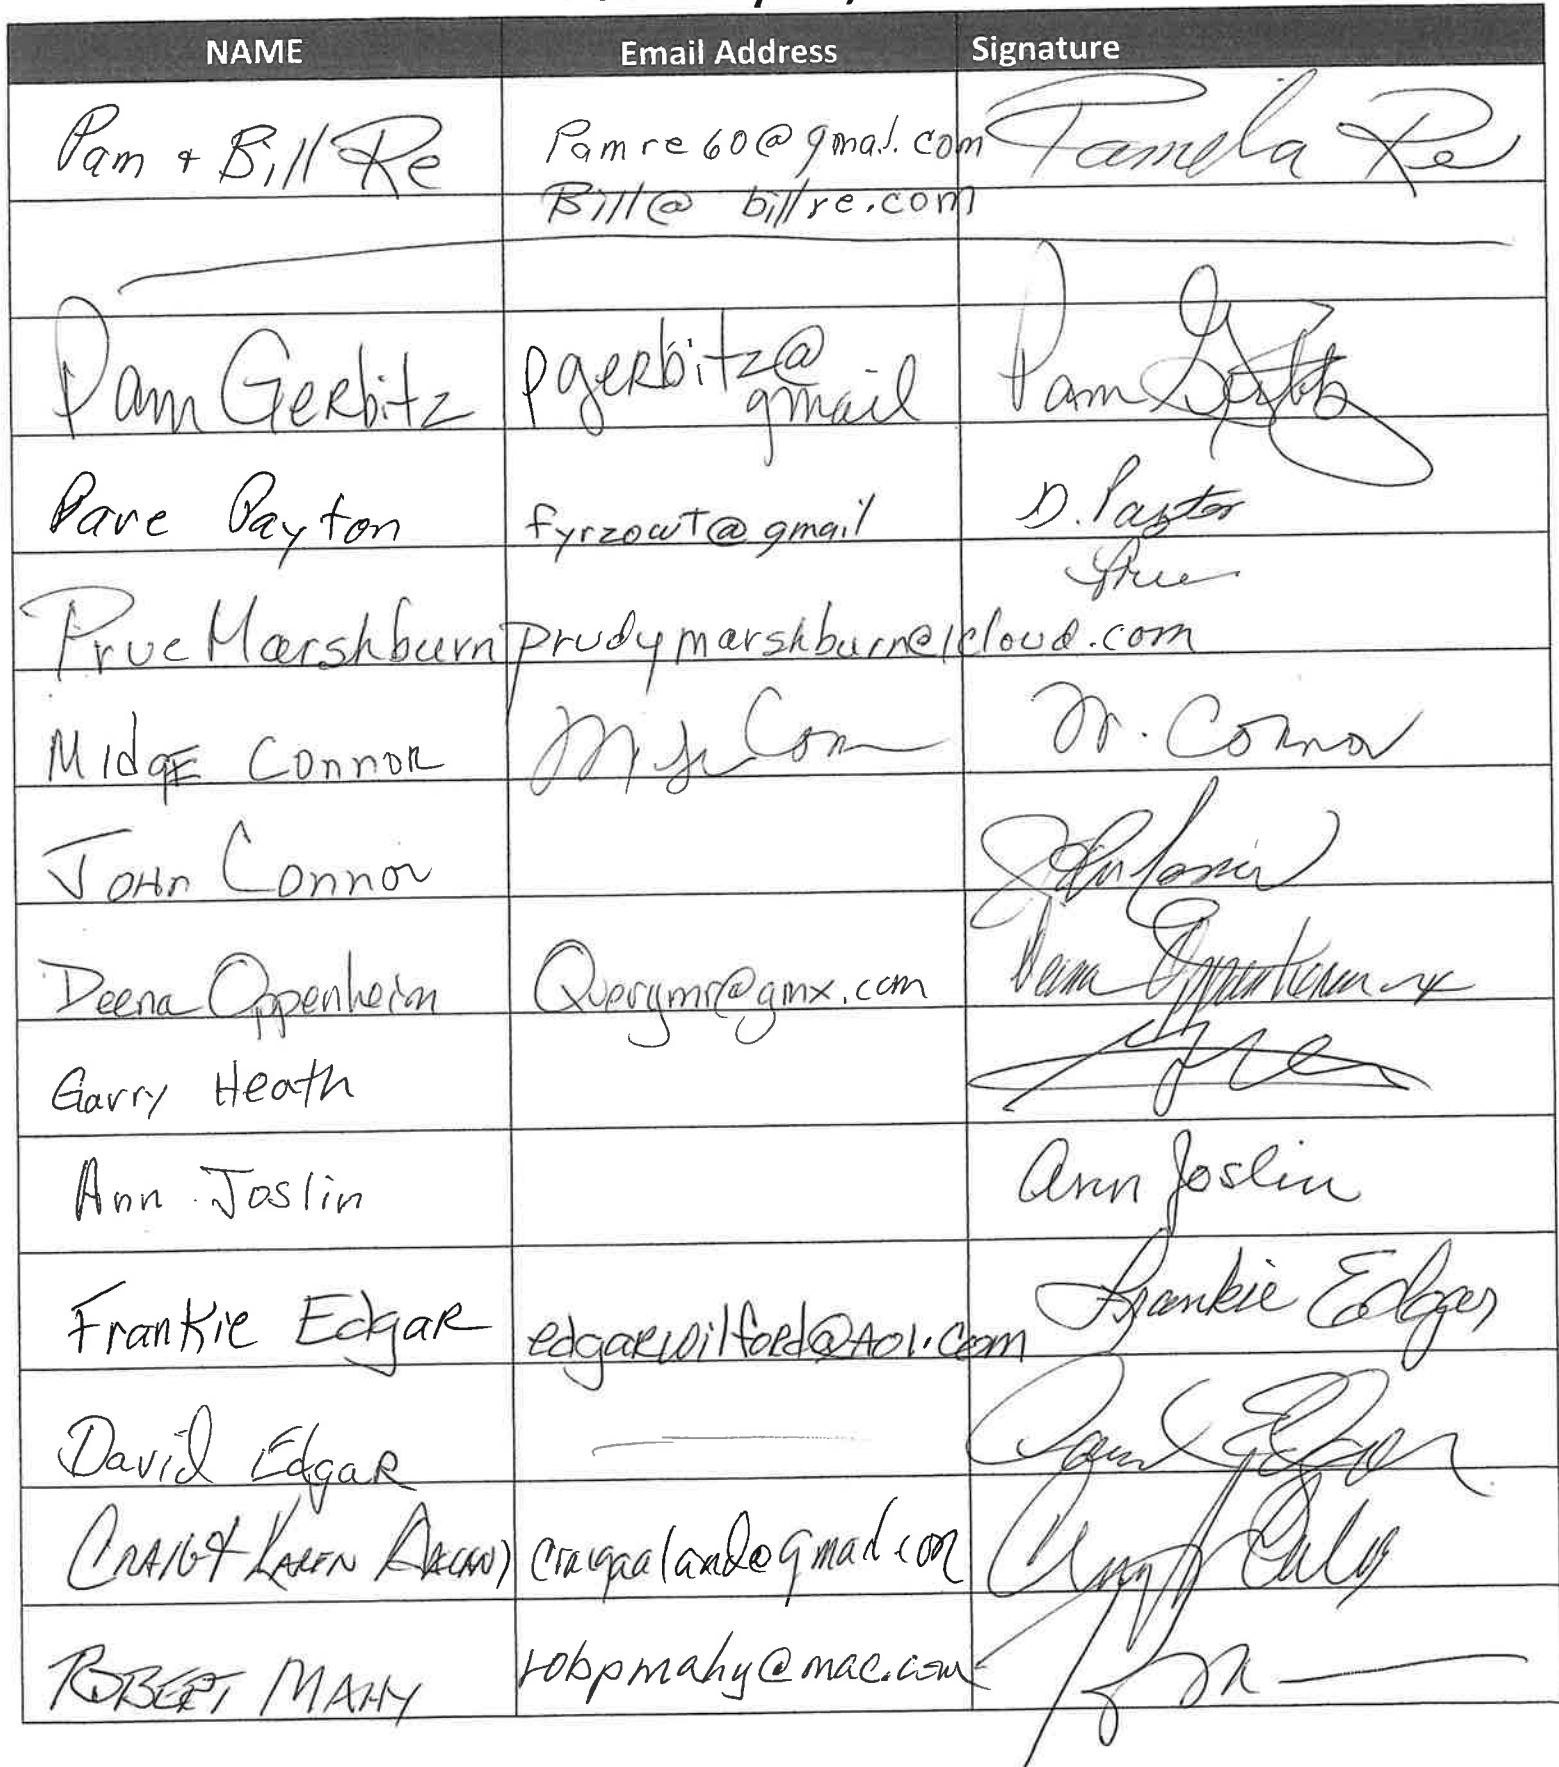 NAME Email Address Signature
Pam + Bill Re Pamre60@gmail.com Pamela Re
Bill@billre.com
Pam Gerbitz pgerbitz@ Pam Gerbitz
gmail
Dave Payton fyrzowt@gmail D. Payton
Prue
Prue Marshburn prudymarshburn@icloud.com
Midge Connor M. Connor
John Connor John Connor
Deena Oppenheim Querymr@gmx.com Deena Oppenheim
Garry Heath
Ann Joslin Ann Joslin
Frankie Edgar edgarwilford@AOL.com Frankie Edgar
David Edgar David Edgar
Craig & Karen craigaaland@gmail.com
Robert Mahy robpmahy@mac.com